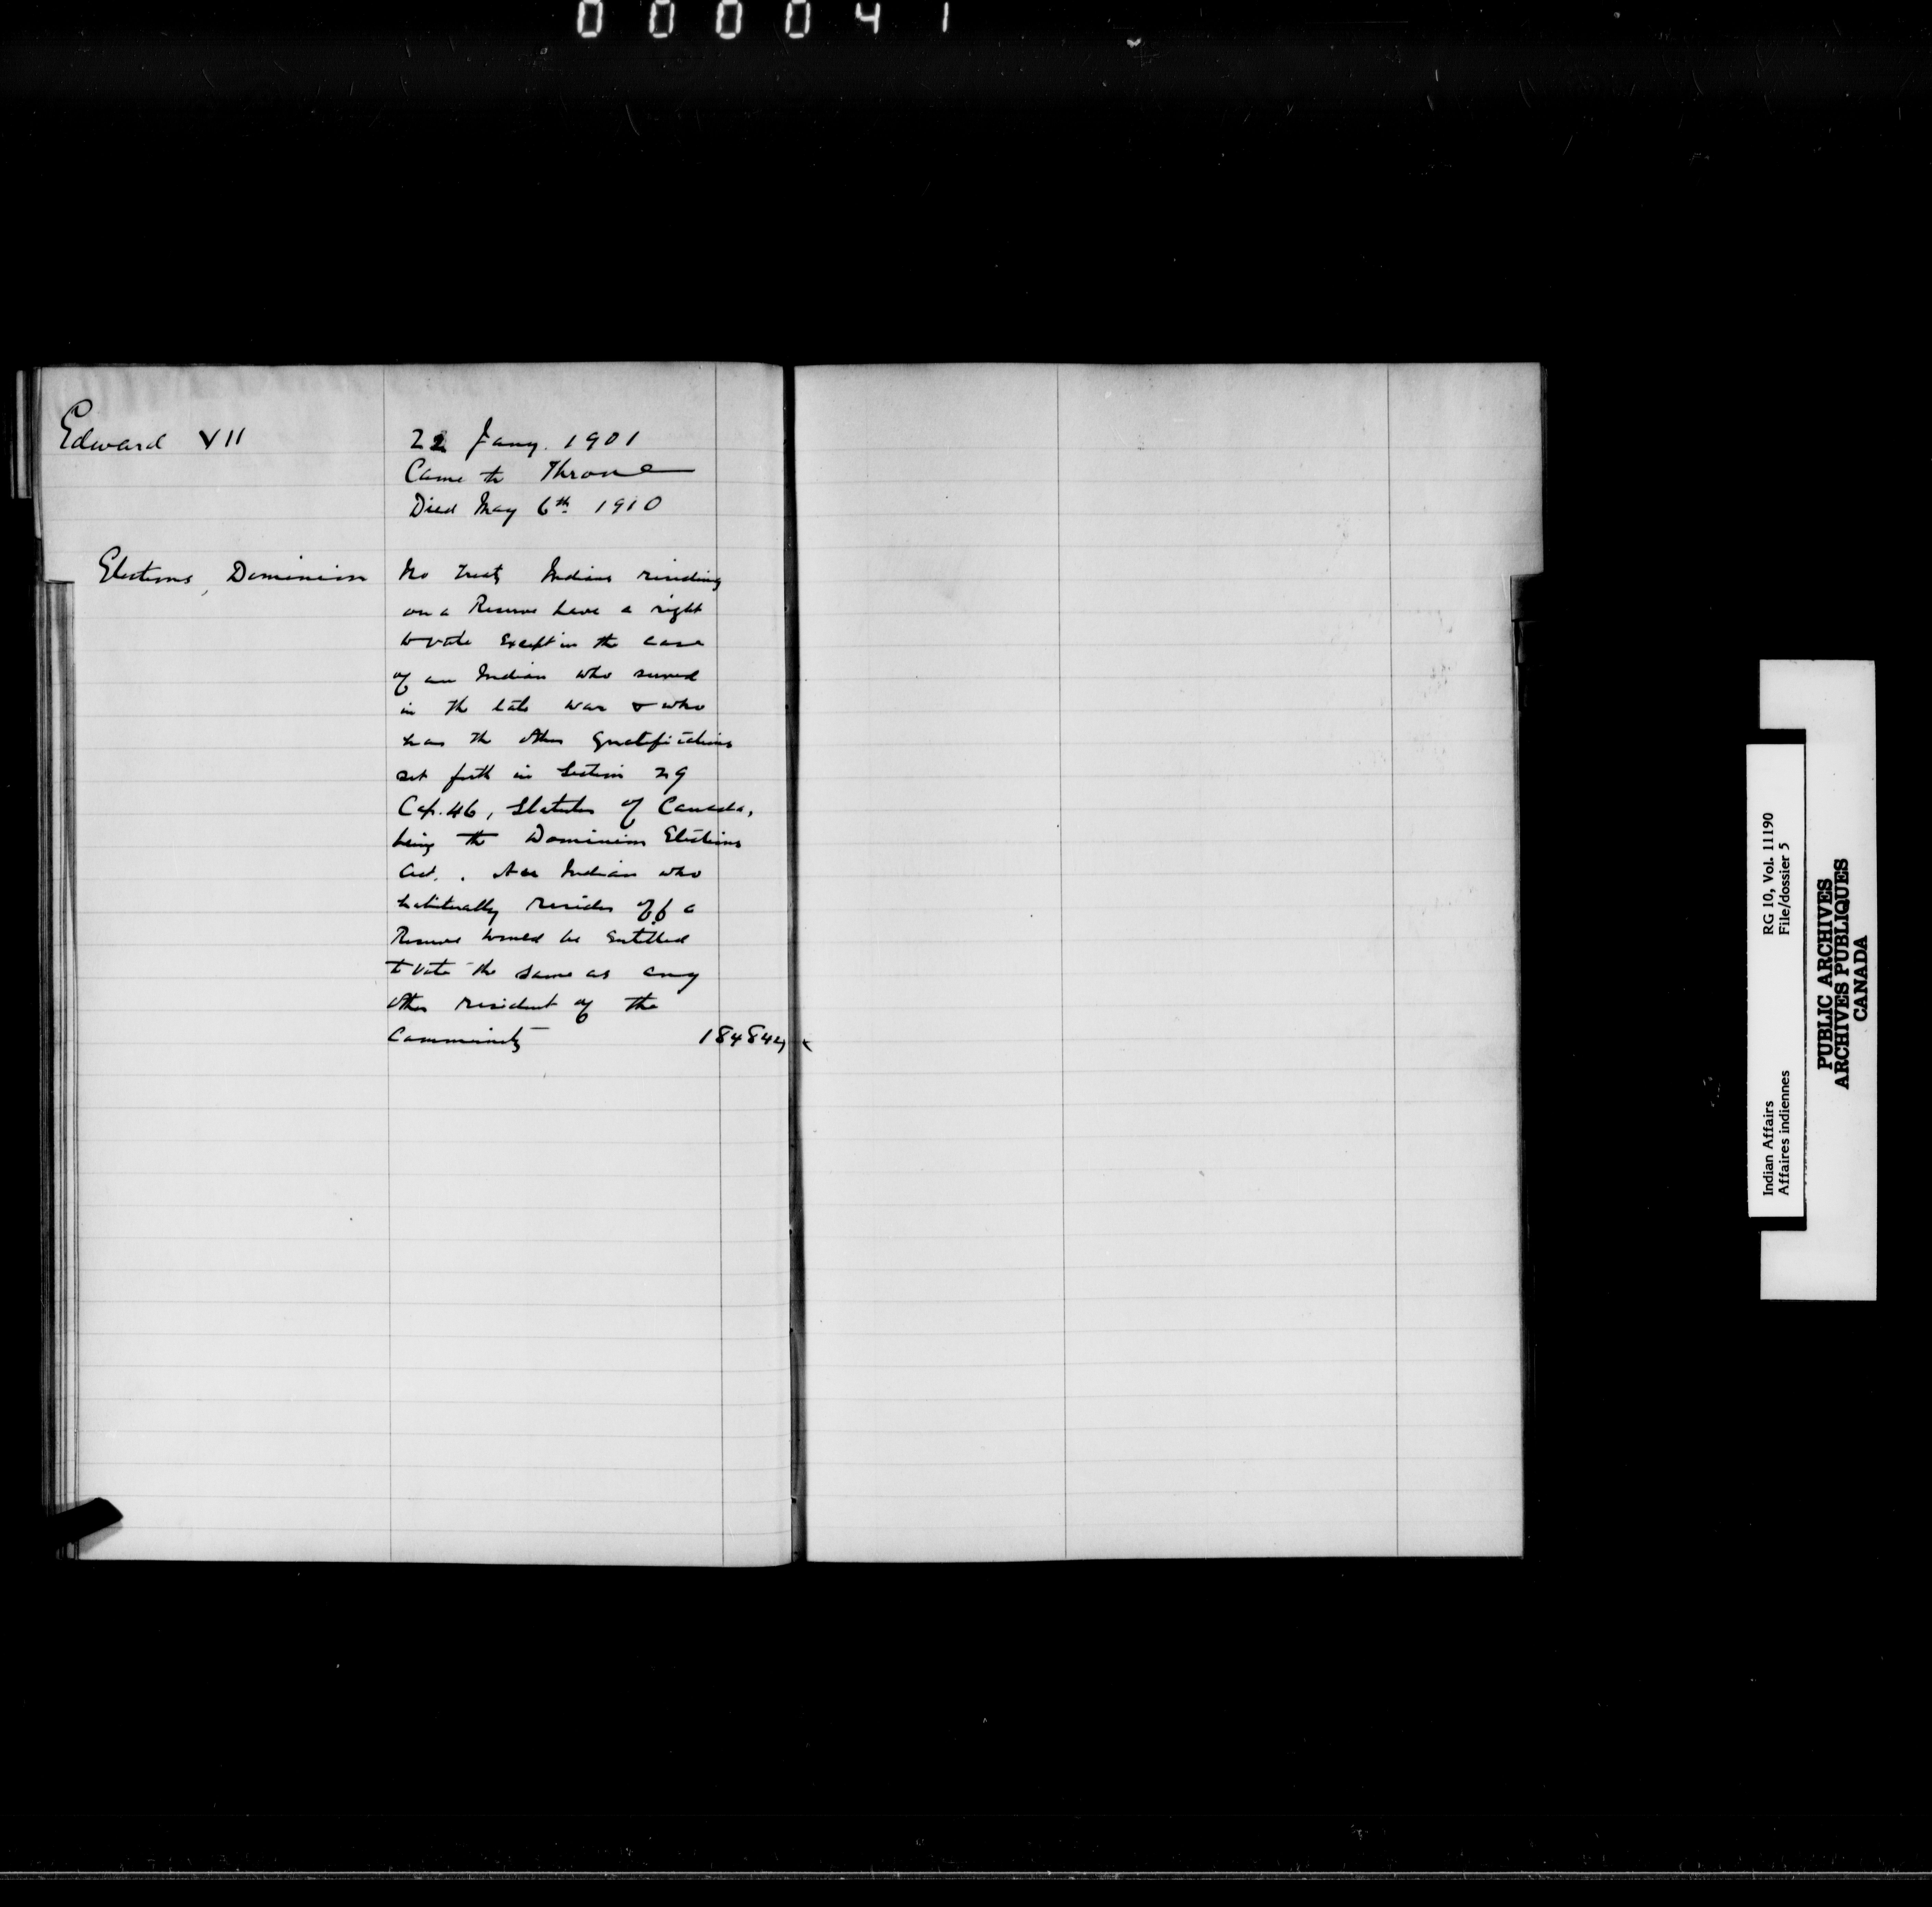 000041
Edward VII
22 Jany. 1901
Came to Throne
Died May 6th 1910
Elections, Dominion
No Treaty Indians residing
on a Reserve have a right
to vote except in the case
of an Indian who served
in the late war & who
has the other qualifications
set forth in Section 29
Cap. 46, Statutes of Canada,
being the Dominion Elections
Act. . An Indian who
habitually resides off a
Reserve would be entitled
to vote the same as any
other resident of the
Community
Indian Affairs RG 10, Vol. 11190
Affaires indiennes File/dossier 5
PUBLIC ARCHIVES
ARCHIVES PUBLIQUES
CANADA